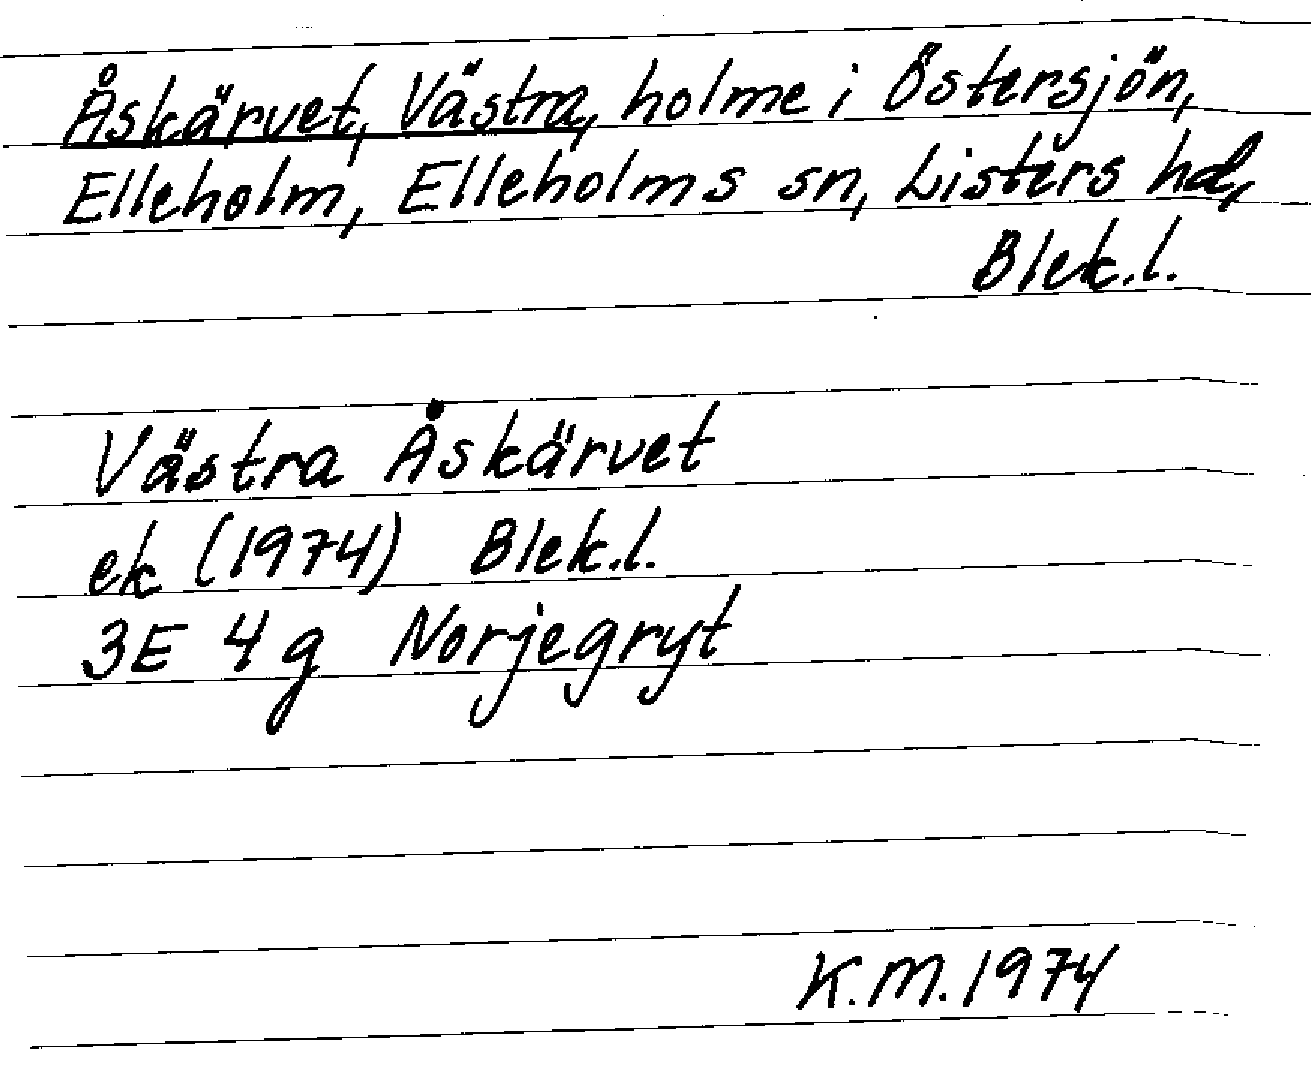 Åskärvet, Västra, holme i Östersjön,
Elleholm, Elleholms sn, Listers hd,
Blek.l.
Västra Åskärvet
ek (1974) Blek.l.
3E 4g Norjegryt
K.M. 1974